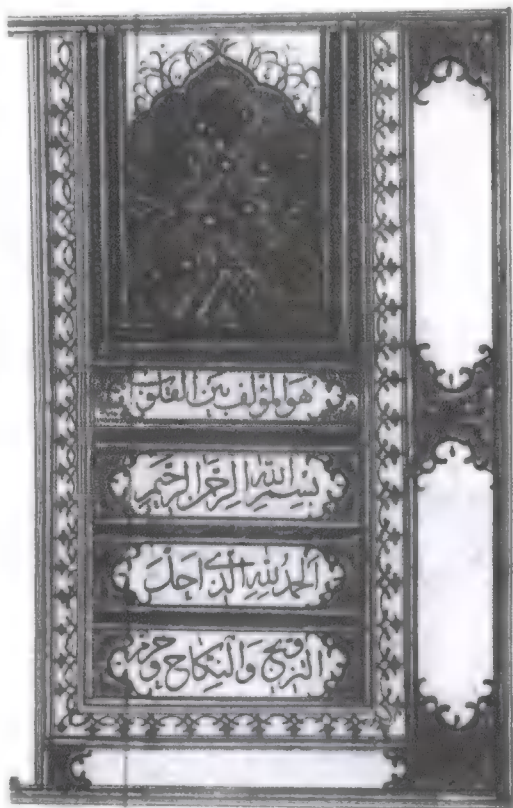 هو المؤلف بين القلوب
بسم الله الرحمن الرحیم
الحمد لله الذی احل
التزویج والنکاح وحرم